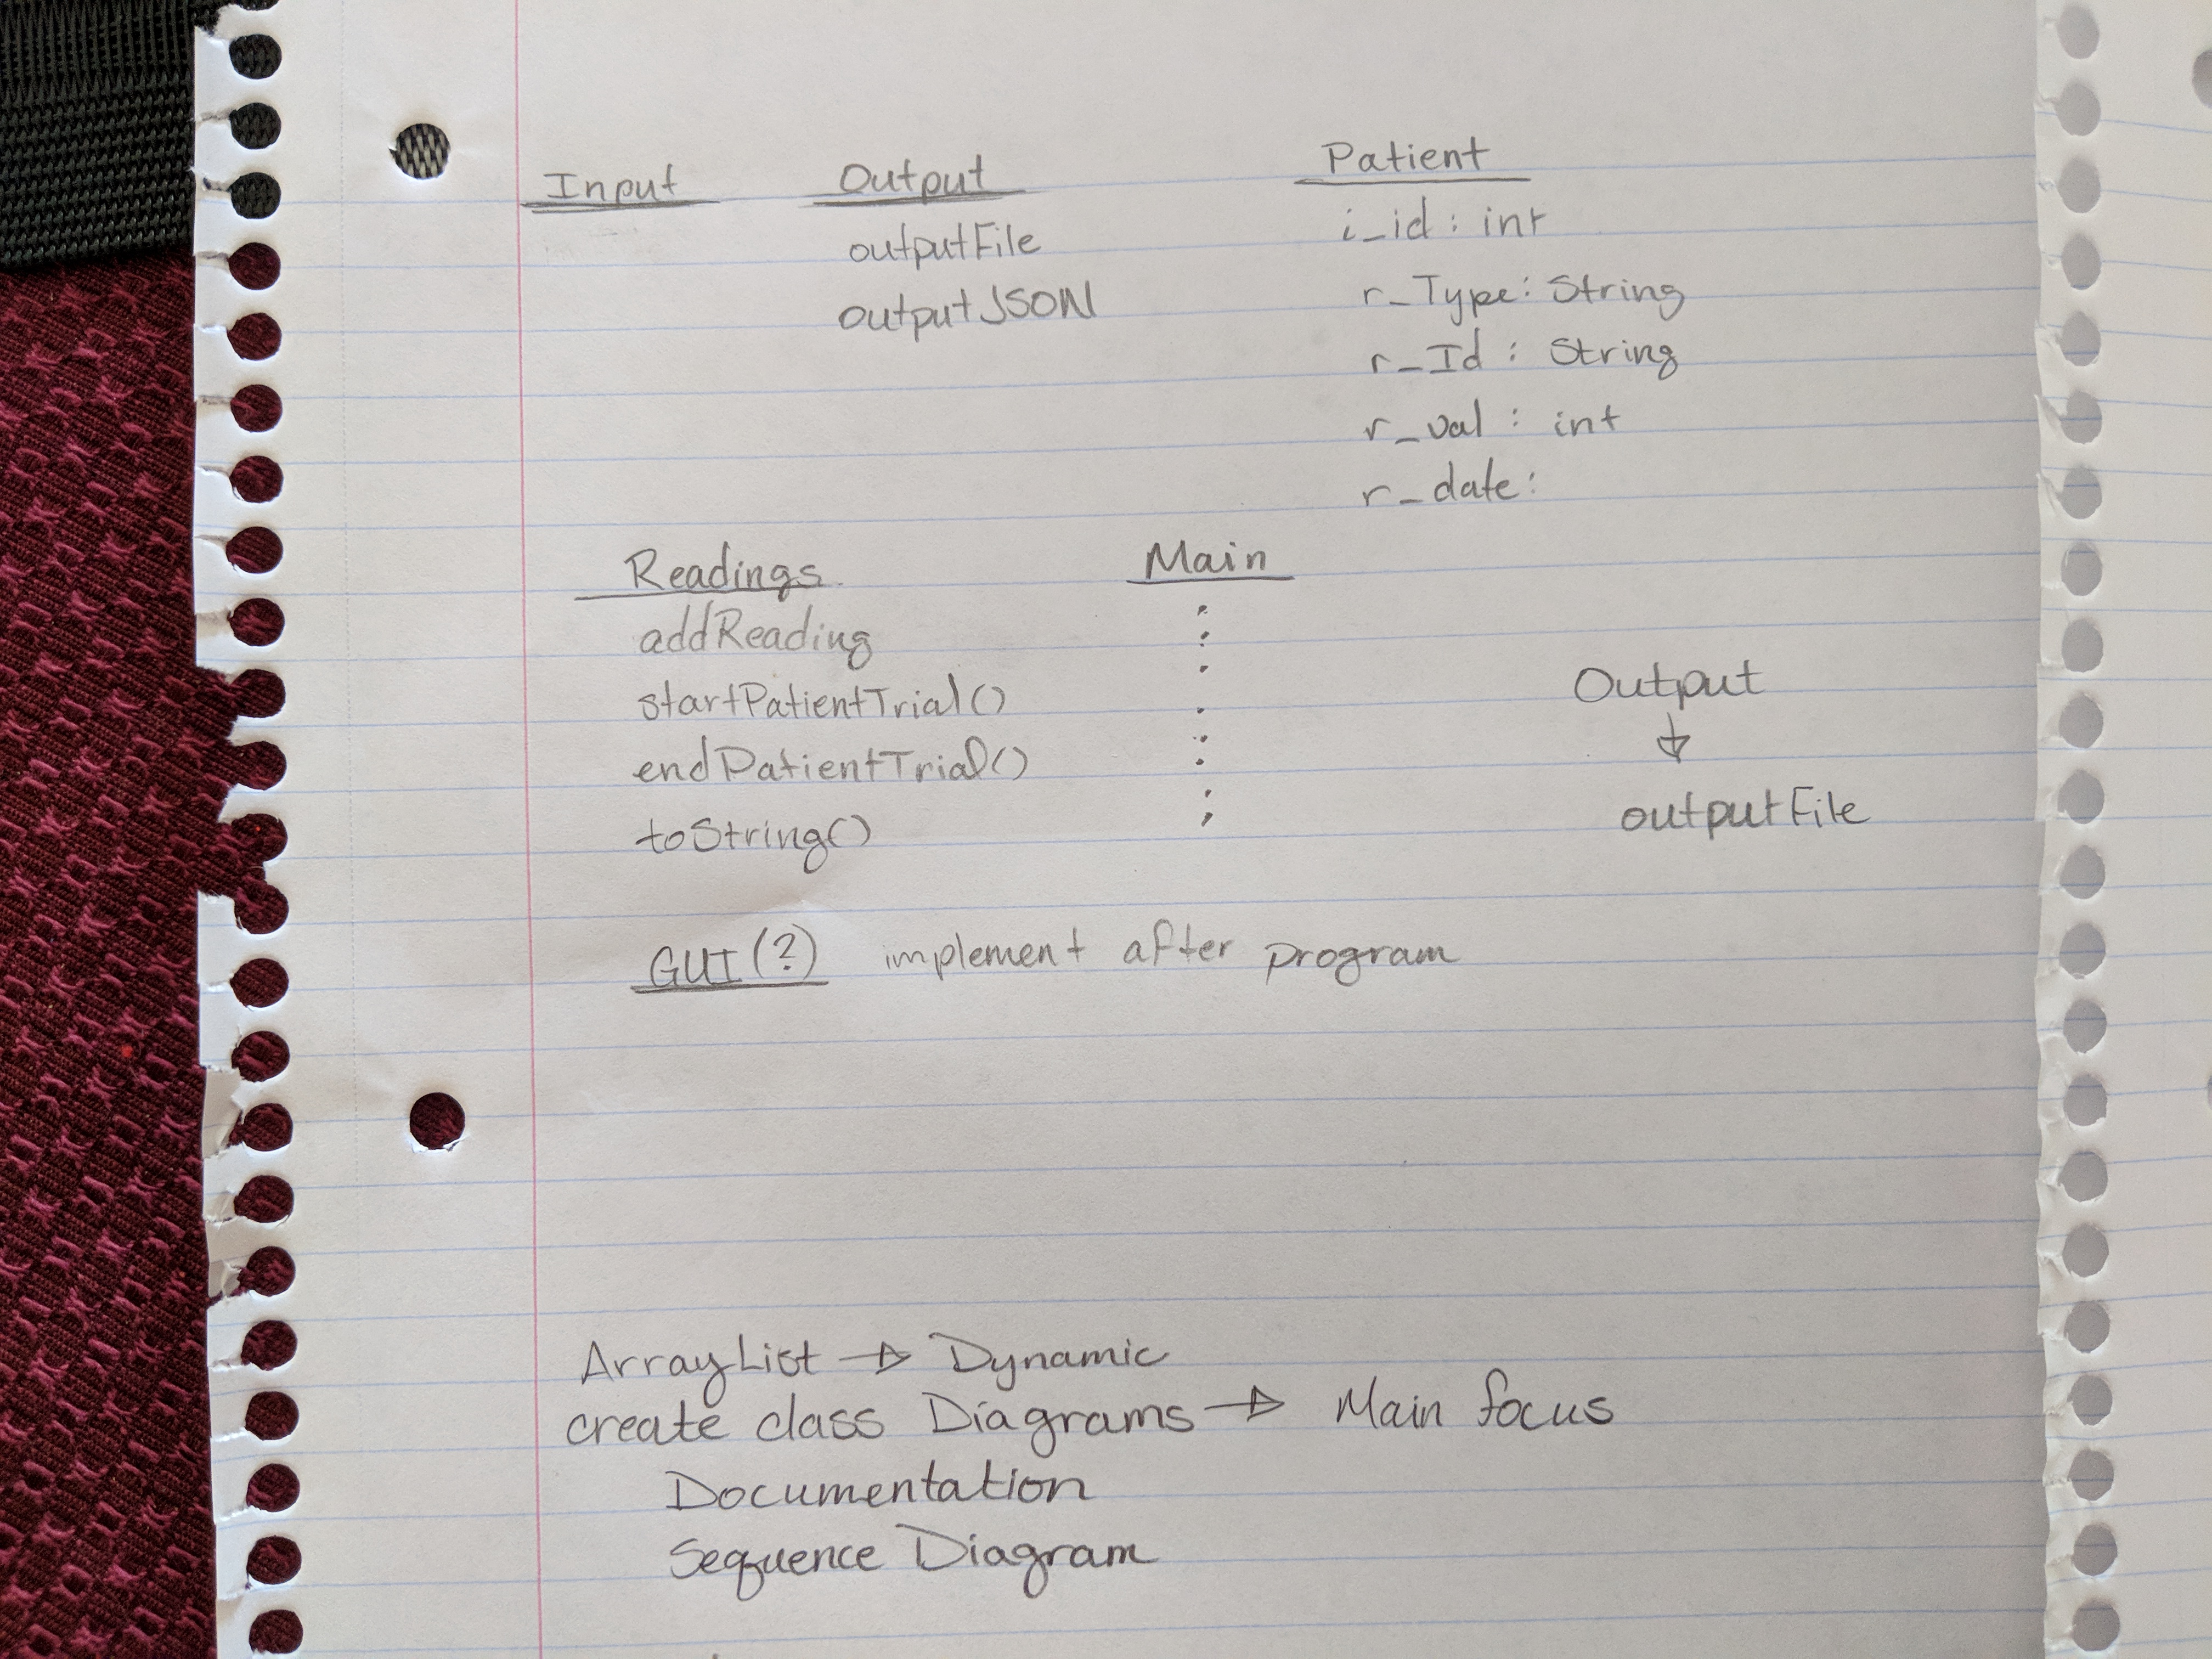 Input Output Patient
outputFile i_id : int
outputJSON r_Type: String
r_Id : String
r_val : int
r_date:
Readings Main
addReading
startPatientTrial() Output
endPatientTrial()
toString() outputFile
GUI(?) implement after program
ArrayList → Dynamic
create class Diagrams → Main focus
Documentation
Sequence Diagram